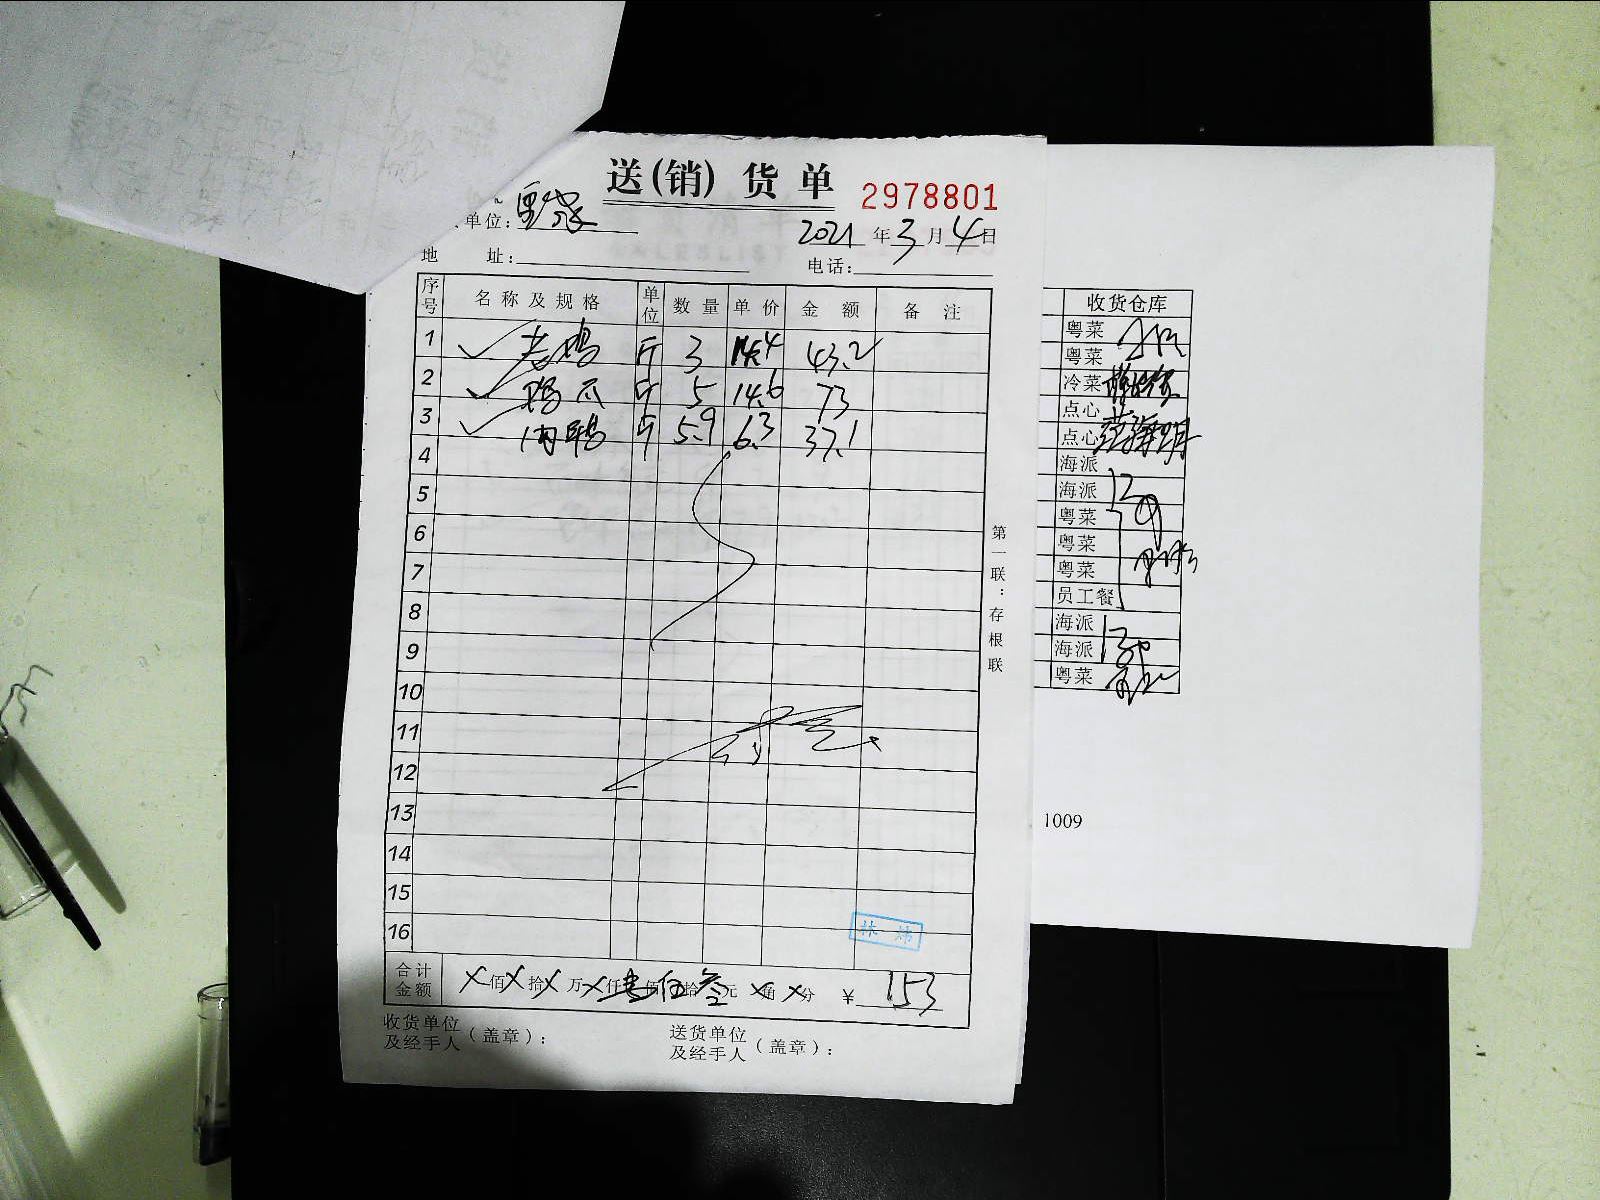 送(销)货单
2978801
单位:
2021年3月4日
地 址:
电话:
序号 名称及规格 单位 数量 单价 金额 备注
1 老鸡 斤 3 14.4 43.2
2 鸡爪 斤 5 14.6 73
3 肉鸭 斤 5.9 6.3 37.1
4
5
6
7
8
9
10
11
12
13
14
15
16
第一联:存根联
林 炜
合计金额 X佰X拾X万X仟壹佰伍拾叁元X角X分 ¥153
收货单位及经手人(盖章):
送货单位及经手人(盖章):
收货仓库
粤菜
粤菜
冷菜
点心
点心
海派
海派
粤菜
粤菜
粤菜
员工餐
海派
海派
粤菜
1009